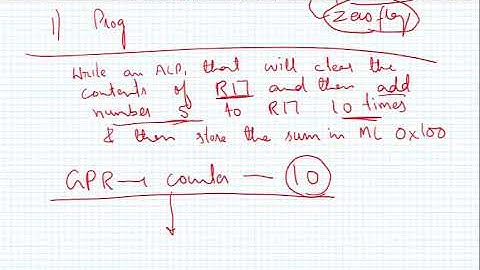 zero flag
1) Prog
Write an ALP, that will clear the
contents of R17 and then add
number 5 to R17 10 times
& then store the sum in ML 0x100
GPR → counter — 10